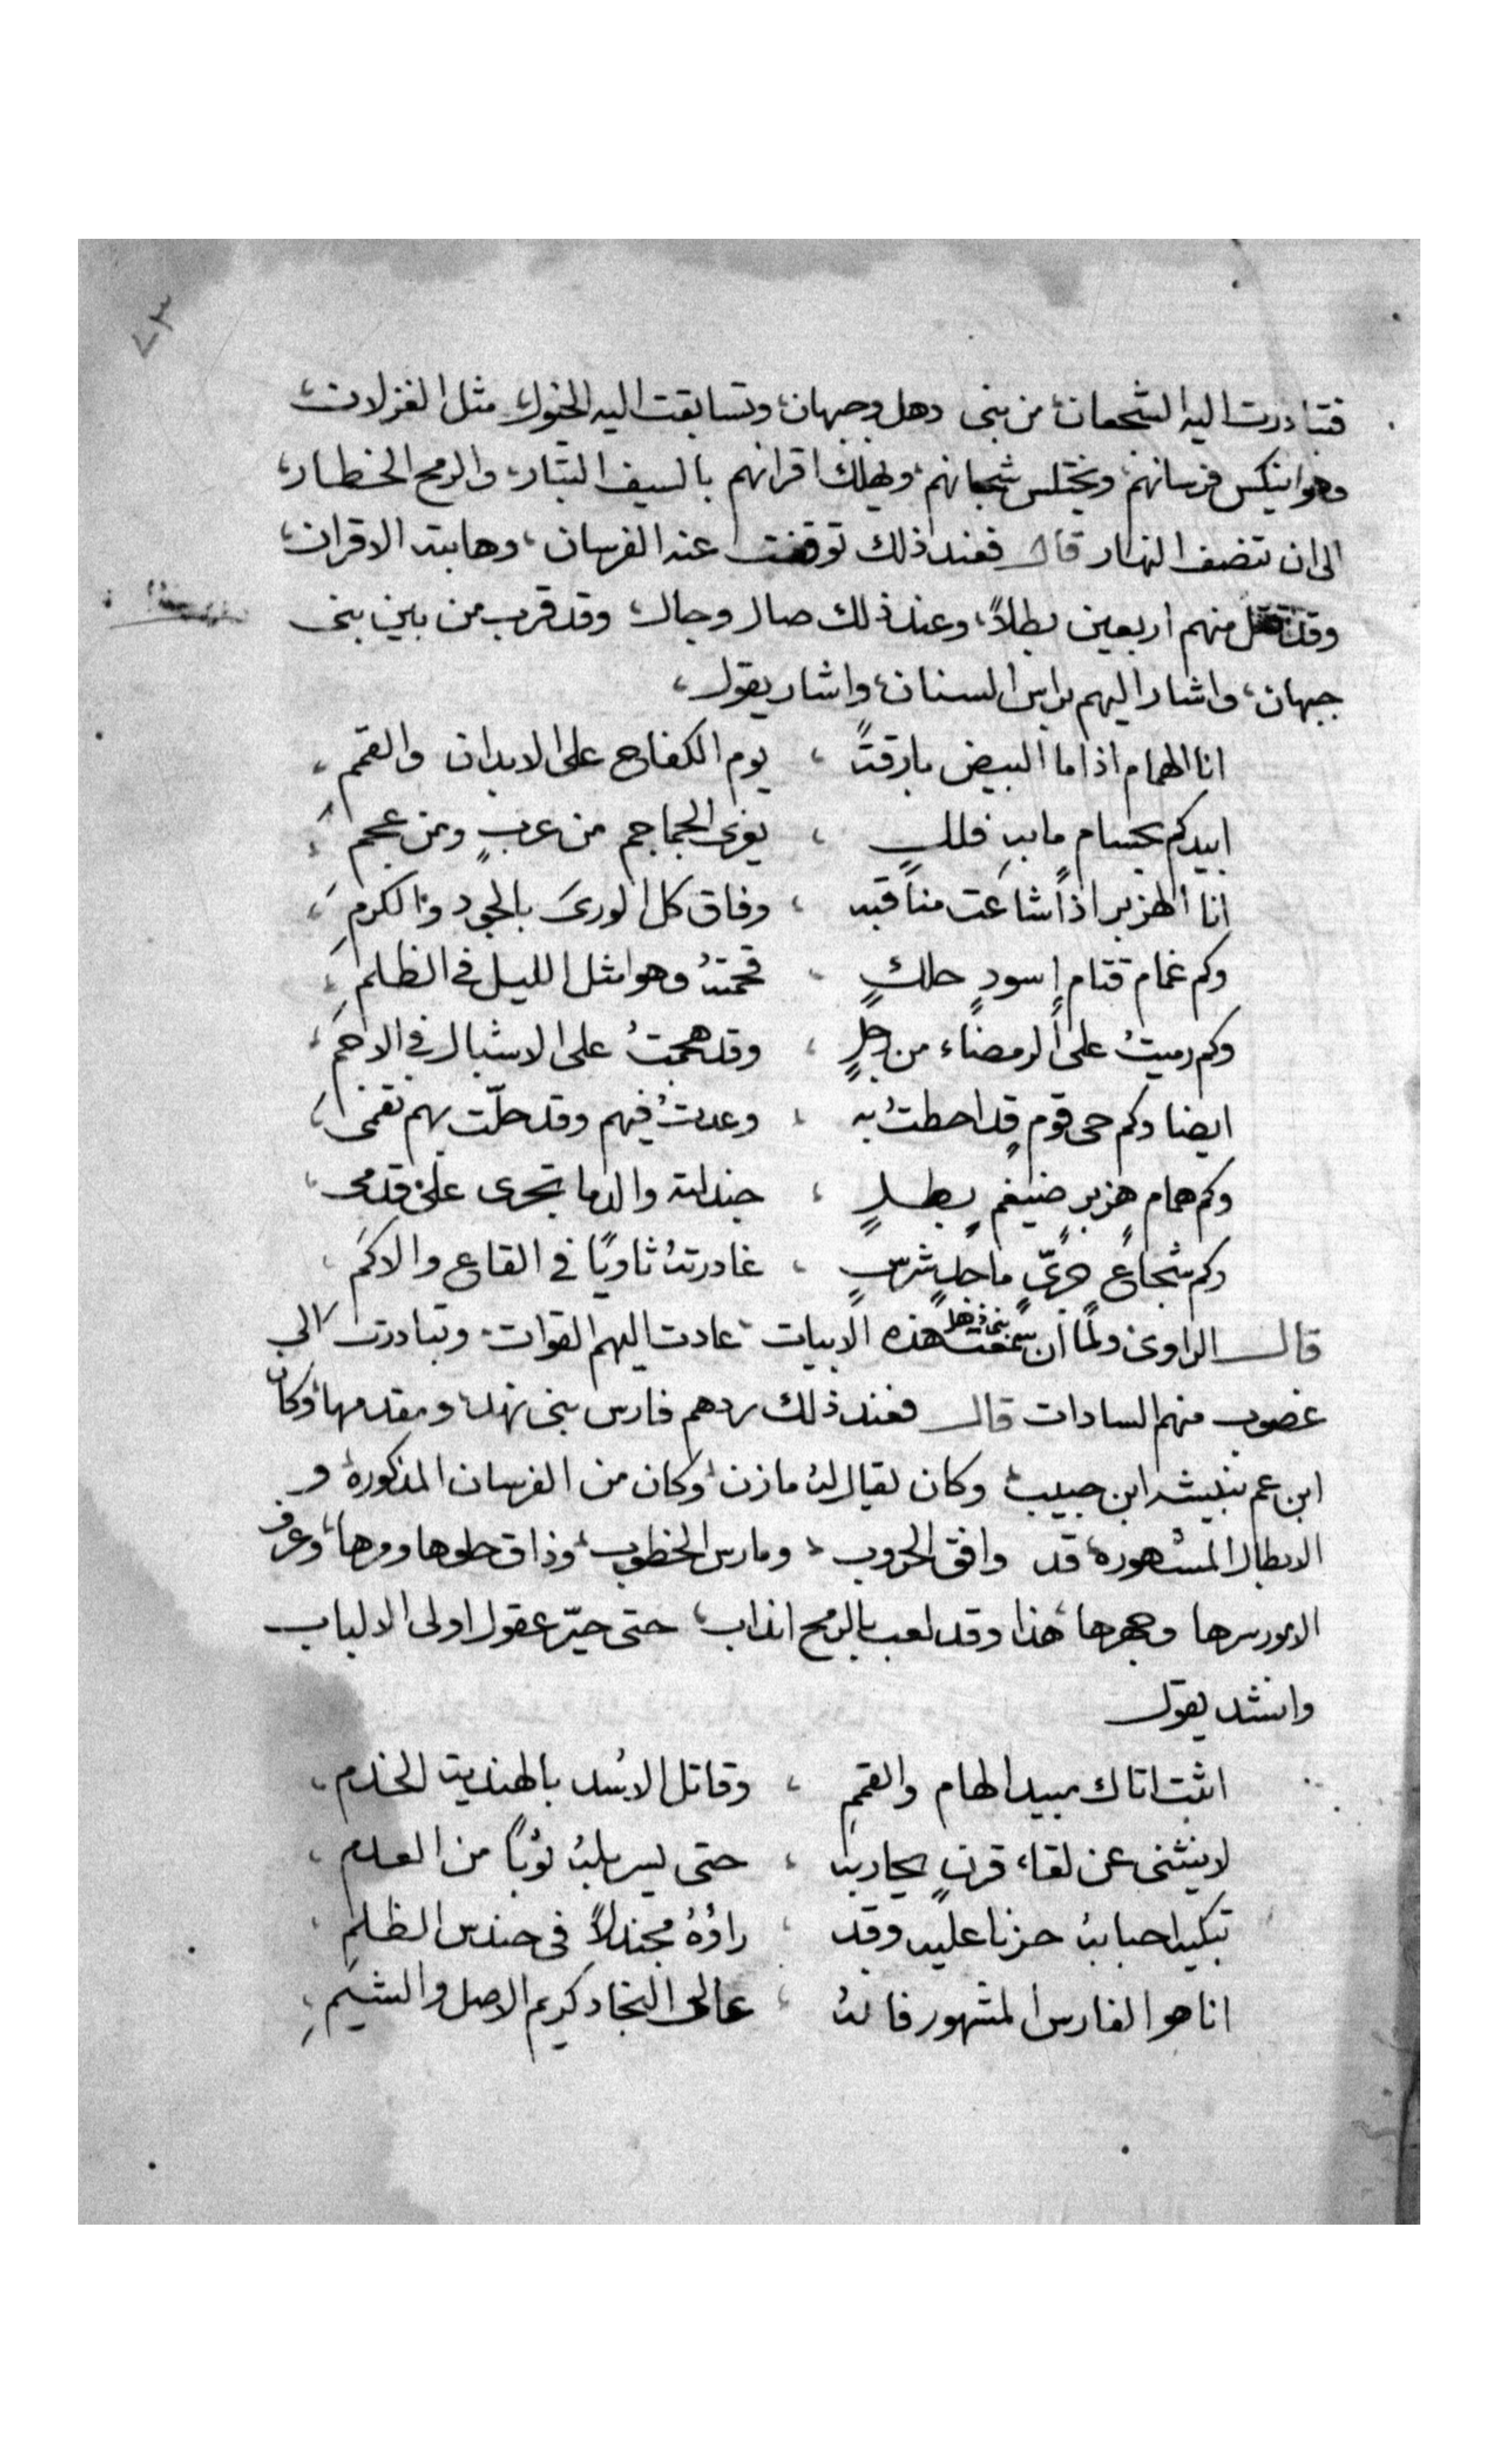 ٢٣
فتبادرت اليه الشجعان، من بنى دهل وجبهان، وتسابقت اليه الخيول، مثل الغزلان،
وهو ينكس فرسانهم، ويختلس شجعانهم، ويهلك اقرانهم بالسيف البتار، والرمح الخطار،
الى ان تنصف النهار قال فعند ذلك توقفت عنه الفرسان، وهابته الاقران،
وقد قتل منهم اربعين بطلاً، وعند ذلك صال وجال، وقد قرب من بين بنى
جبهان، واشار اليهم براس السنان، واشار يقول،
انا الهمام اذا ما البيض بارقتً ، يوم الكفاح على الابدان والقمم،
ابيدكم بحسامٍ مابهِ فللٍ ، يفرى الجماجم من عربٍ ومن عجم،
انا الهزبر اذا شاعت مناقبه ، وفاق كل الورى بالجود والكرمِ،
وكم غمام قتامٍ اسودٍ حلكٍ ، قحمتهُ وهو مثل الليل فى الظلمِ،
وكم رميتُ على الرمضاء من رجلٍ ، وقد هجمتُ على الاشبال فى الاجم،
ايضا وكم حى قومٍ قد احطتُ به ، وعدتُ فيهم وقد حلّت بهم نقمى،
وكم همامٍ هزبرٍ ضيغمٍ بطلٍ ، جندلته والدما تجرى على قدمى،
وكم شجاعٍ جرىٍّ ماجدٍ شرسٍ ، غادرتهُ ثاويًا فى القاع والاكم،
قال الراوى ولما ان سمعت بنى دهل هذه الابيات، عادت اليهم القوات، وتبادرت الى
غضوب منهم السادات قال فعند ذلك ردهم فارس بنى نهد، ومقدمها، وكان
ابن عم نبيشه ابن حبيب، وكان يقال لهُ مازن، وكان من الفرسان المذكورة، و
الابطال المشهورة، قد وافق الحروب، ومارس الخطوب، وذاق حلوها ومرها، وعرف
الامور سرها وجهرها، هذا وقد لعب بالرمح انداب، حتى حيّر عقول اولى الالباب
وانشد يقول
اثبت اتاك مبيد الهام والقممِ ، وقاتل الاسُد بالهندية الخذم،
لا ينثنى عن لقاء قرنٍ يحاربه ، حتى يسربلهُ ثوبًا من العدم،
تبكيه احبابهُ حزنا عليه وقد ، راؤهُ مجندلاً فى حندس الظلم،
انا هو الفارس المشهور قائلهُ ، عالى النجاد كريم الاصل والشيم،